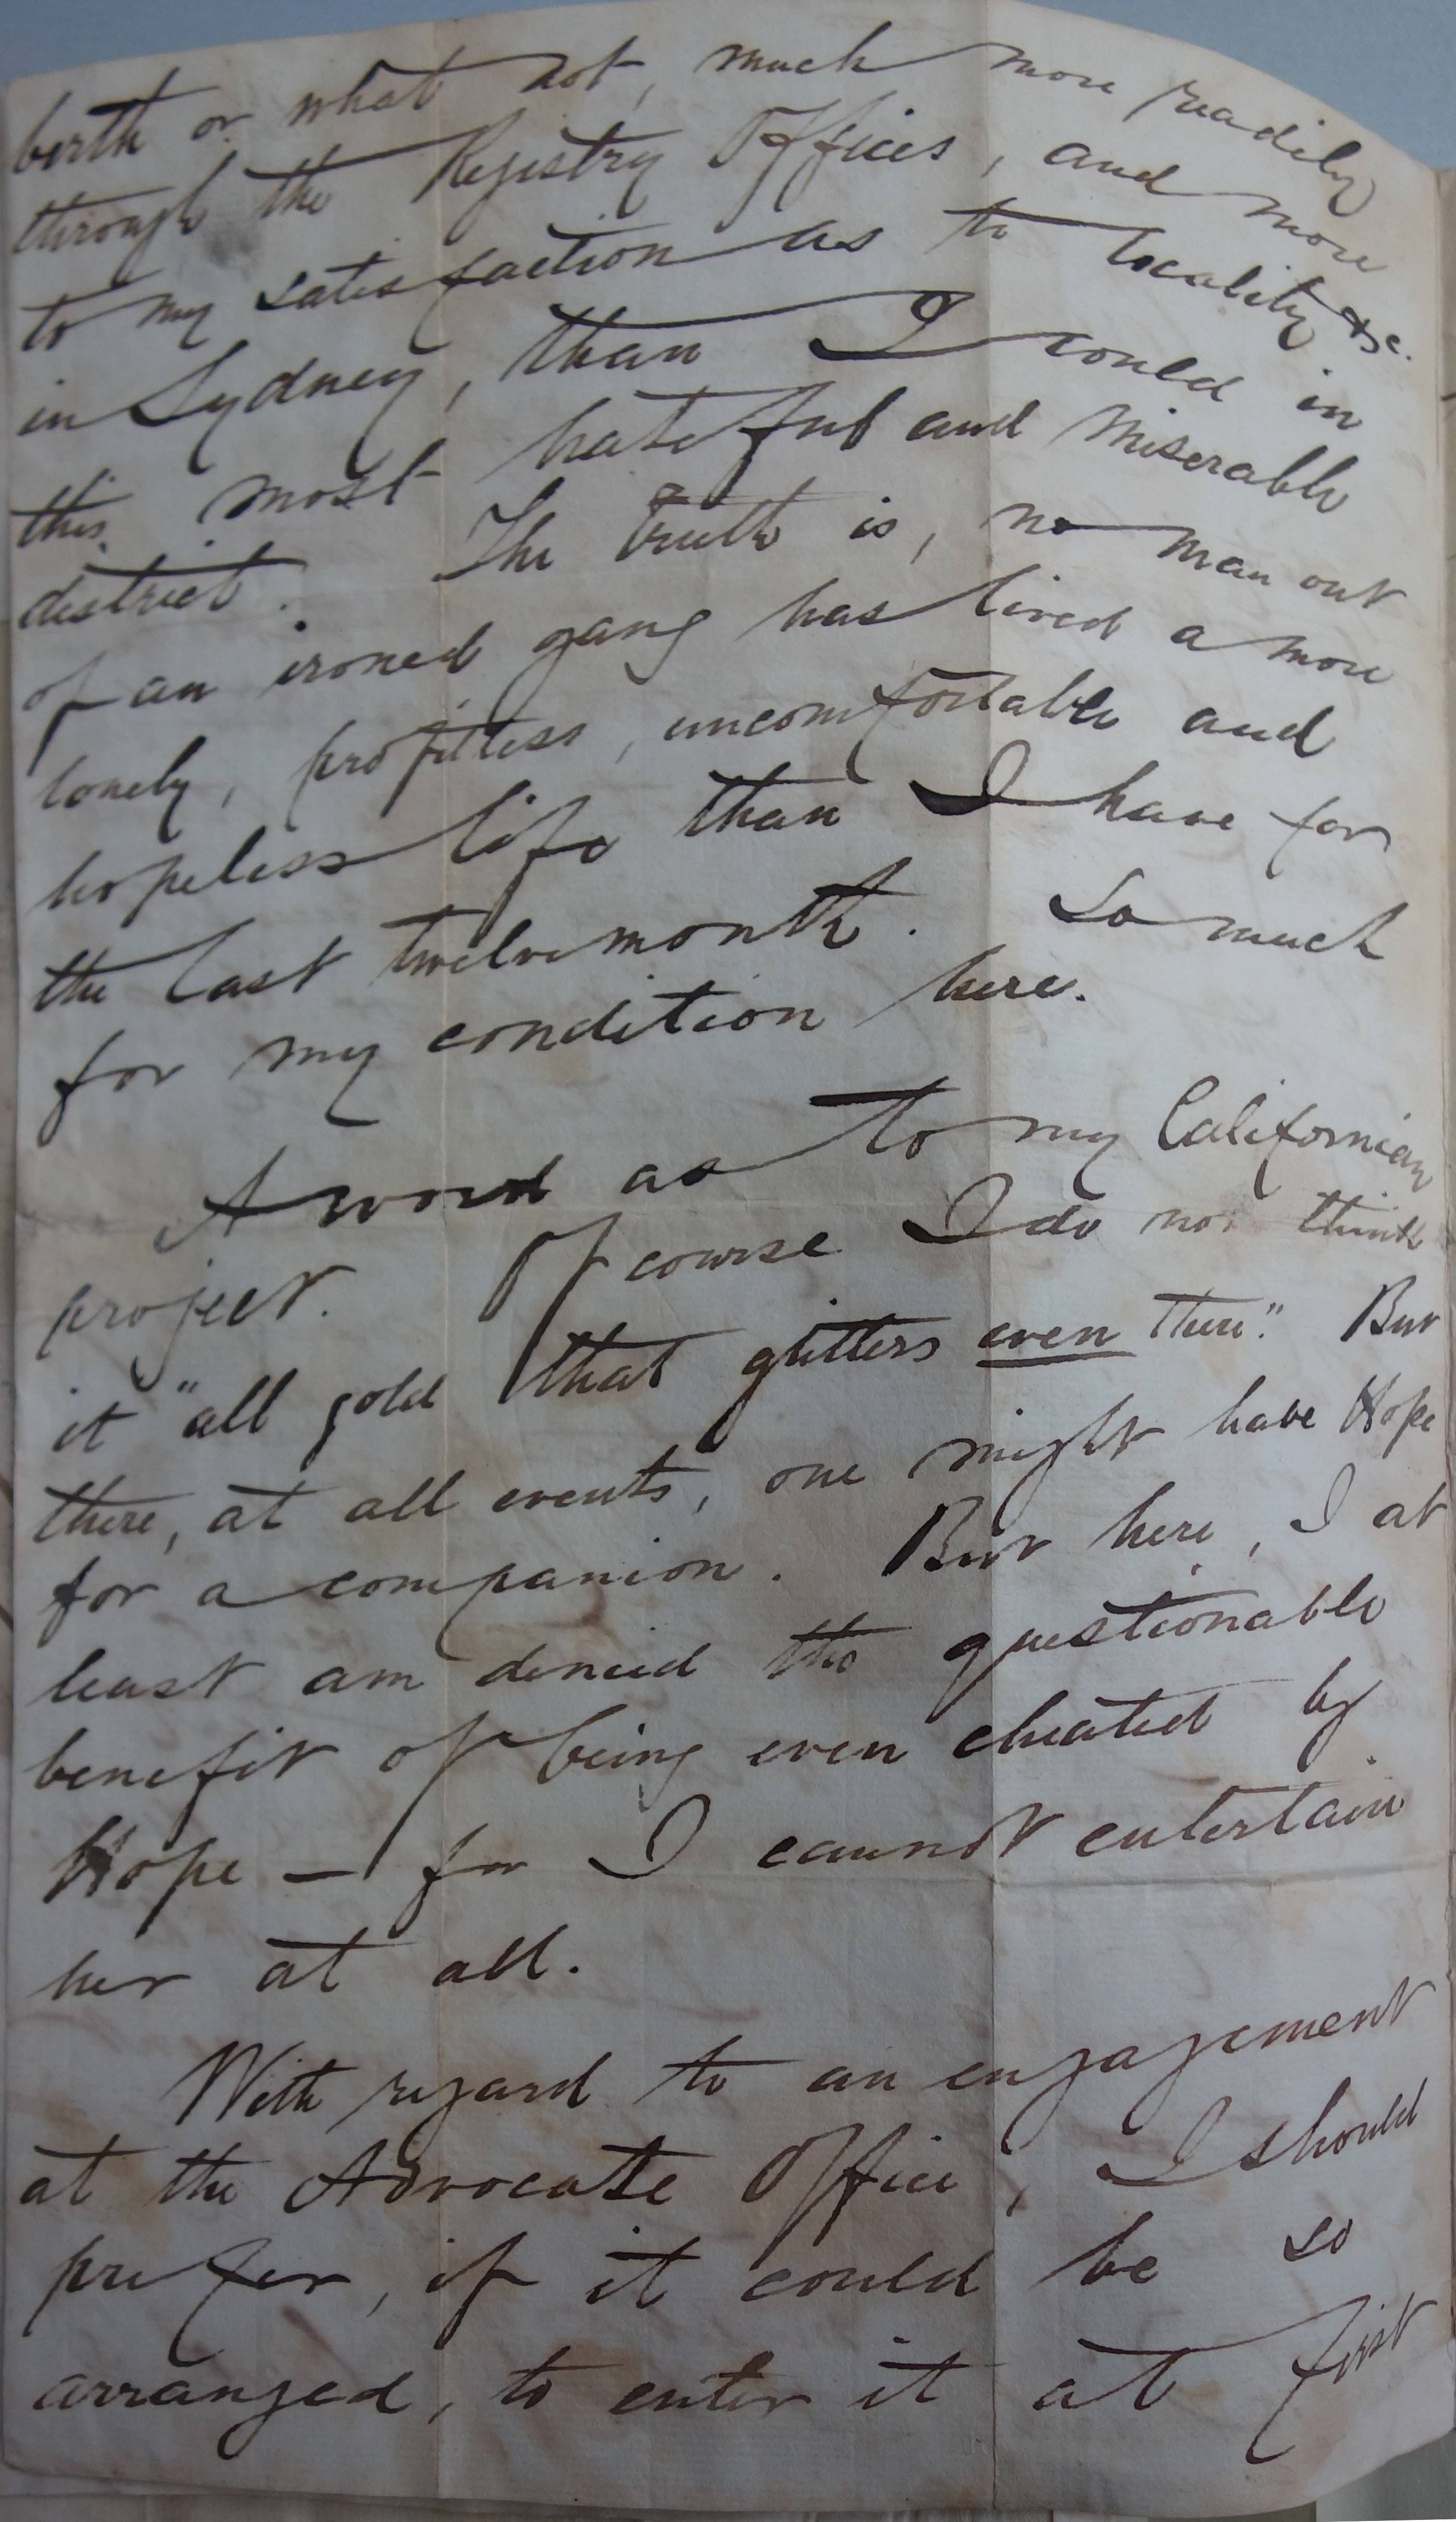 berth or what not, much more readily
through the Registry Offices, and more
to my satisfaction as to locality &c.
in Sydney, than I could in
this most hateful and miserable
district. The truth is, no man out
of an ironed gang has lived a more
lonely, profitless, uncomfortable and
hopeless life than I have for
the last twelvemonth. So much
for my condition here.
A word as to my Californian
project. Of course I do not think
it "all gold that glitters even there". But
there, at all events, one might have Hope
for a companion. But here, I at
least am denied the questionable
benefit of being even cheated by
Hope — for I cannot entertain
her at all.
With regard to an engagement
at the Advocate Office, I should
prefer, if it could be so
arranged, to enter it at first